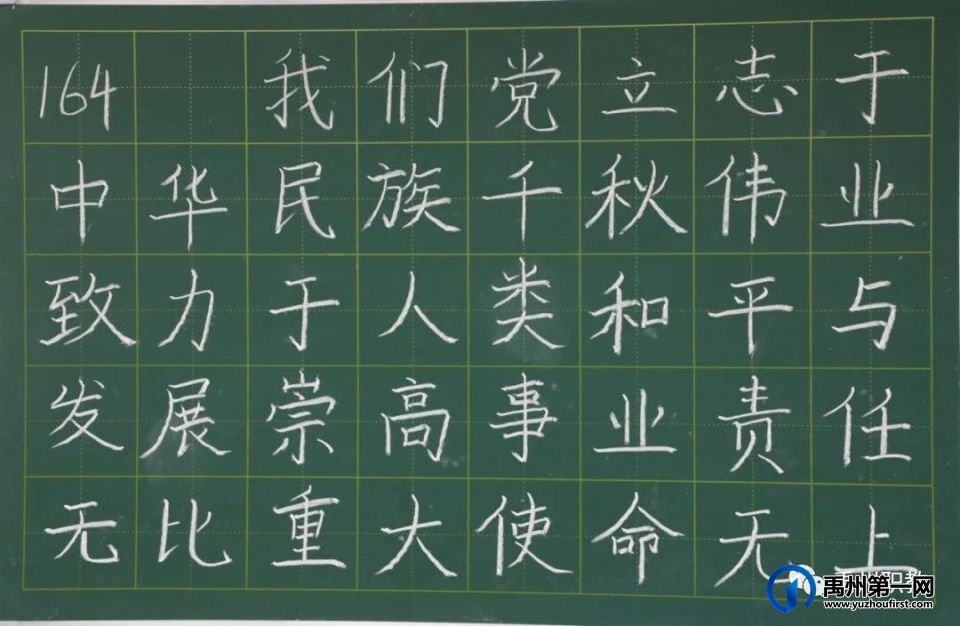 164 我们党立志于
中华民族千秋伟业
致力于人类和平与
发展崇高事业责任
无比重大使命无上
禹州第一网
www.yuzhoufirst.com